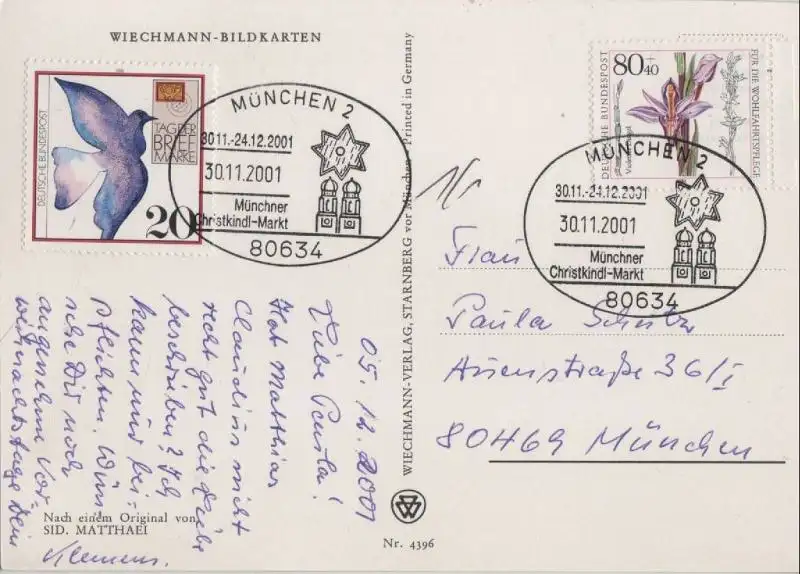 WIECHMANN-BILDKARTEN
DEUTSCHE BUNDESPOST
TAG DER
BRIEF
MARKE
20
MÜNCHEN 2
30.11.-24.12.2001
30.11.2001
Münchner
Christkindl-Markt
80634
DEUTSCHE BUNDESPOST
80+40
FÜR DIE WOHLFAHRTSPFLEGE
MÜNCHEN 2
30.11.-24.12.2001
30.11.2001
Münchner
Christkindl-Markt
80634
05.12.2001
Liebe Paula!
Hat Matthias
Claudius nicht
recht gut die Liebe
beschrieben? Ich
kann nur bei-
pflichten. Wün-
sche Dir noch
angenehme Vor-
weihnachtstage Dein
Klemens.
Nach einem Original von
SID. MATTHAEI
WIECHMANN-VERLAG, STARNBERG vor München · Printed in Germany
Nr. 4396
Frau
Paula
Auenstraße 36/I
80469 München